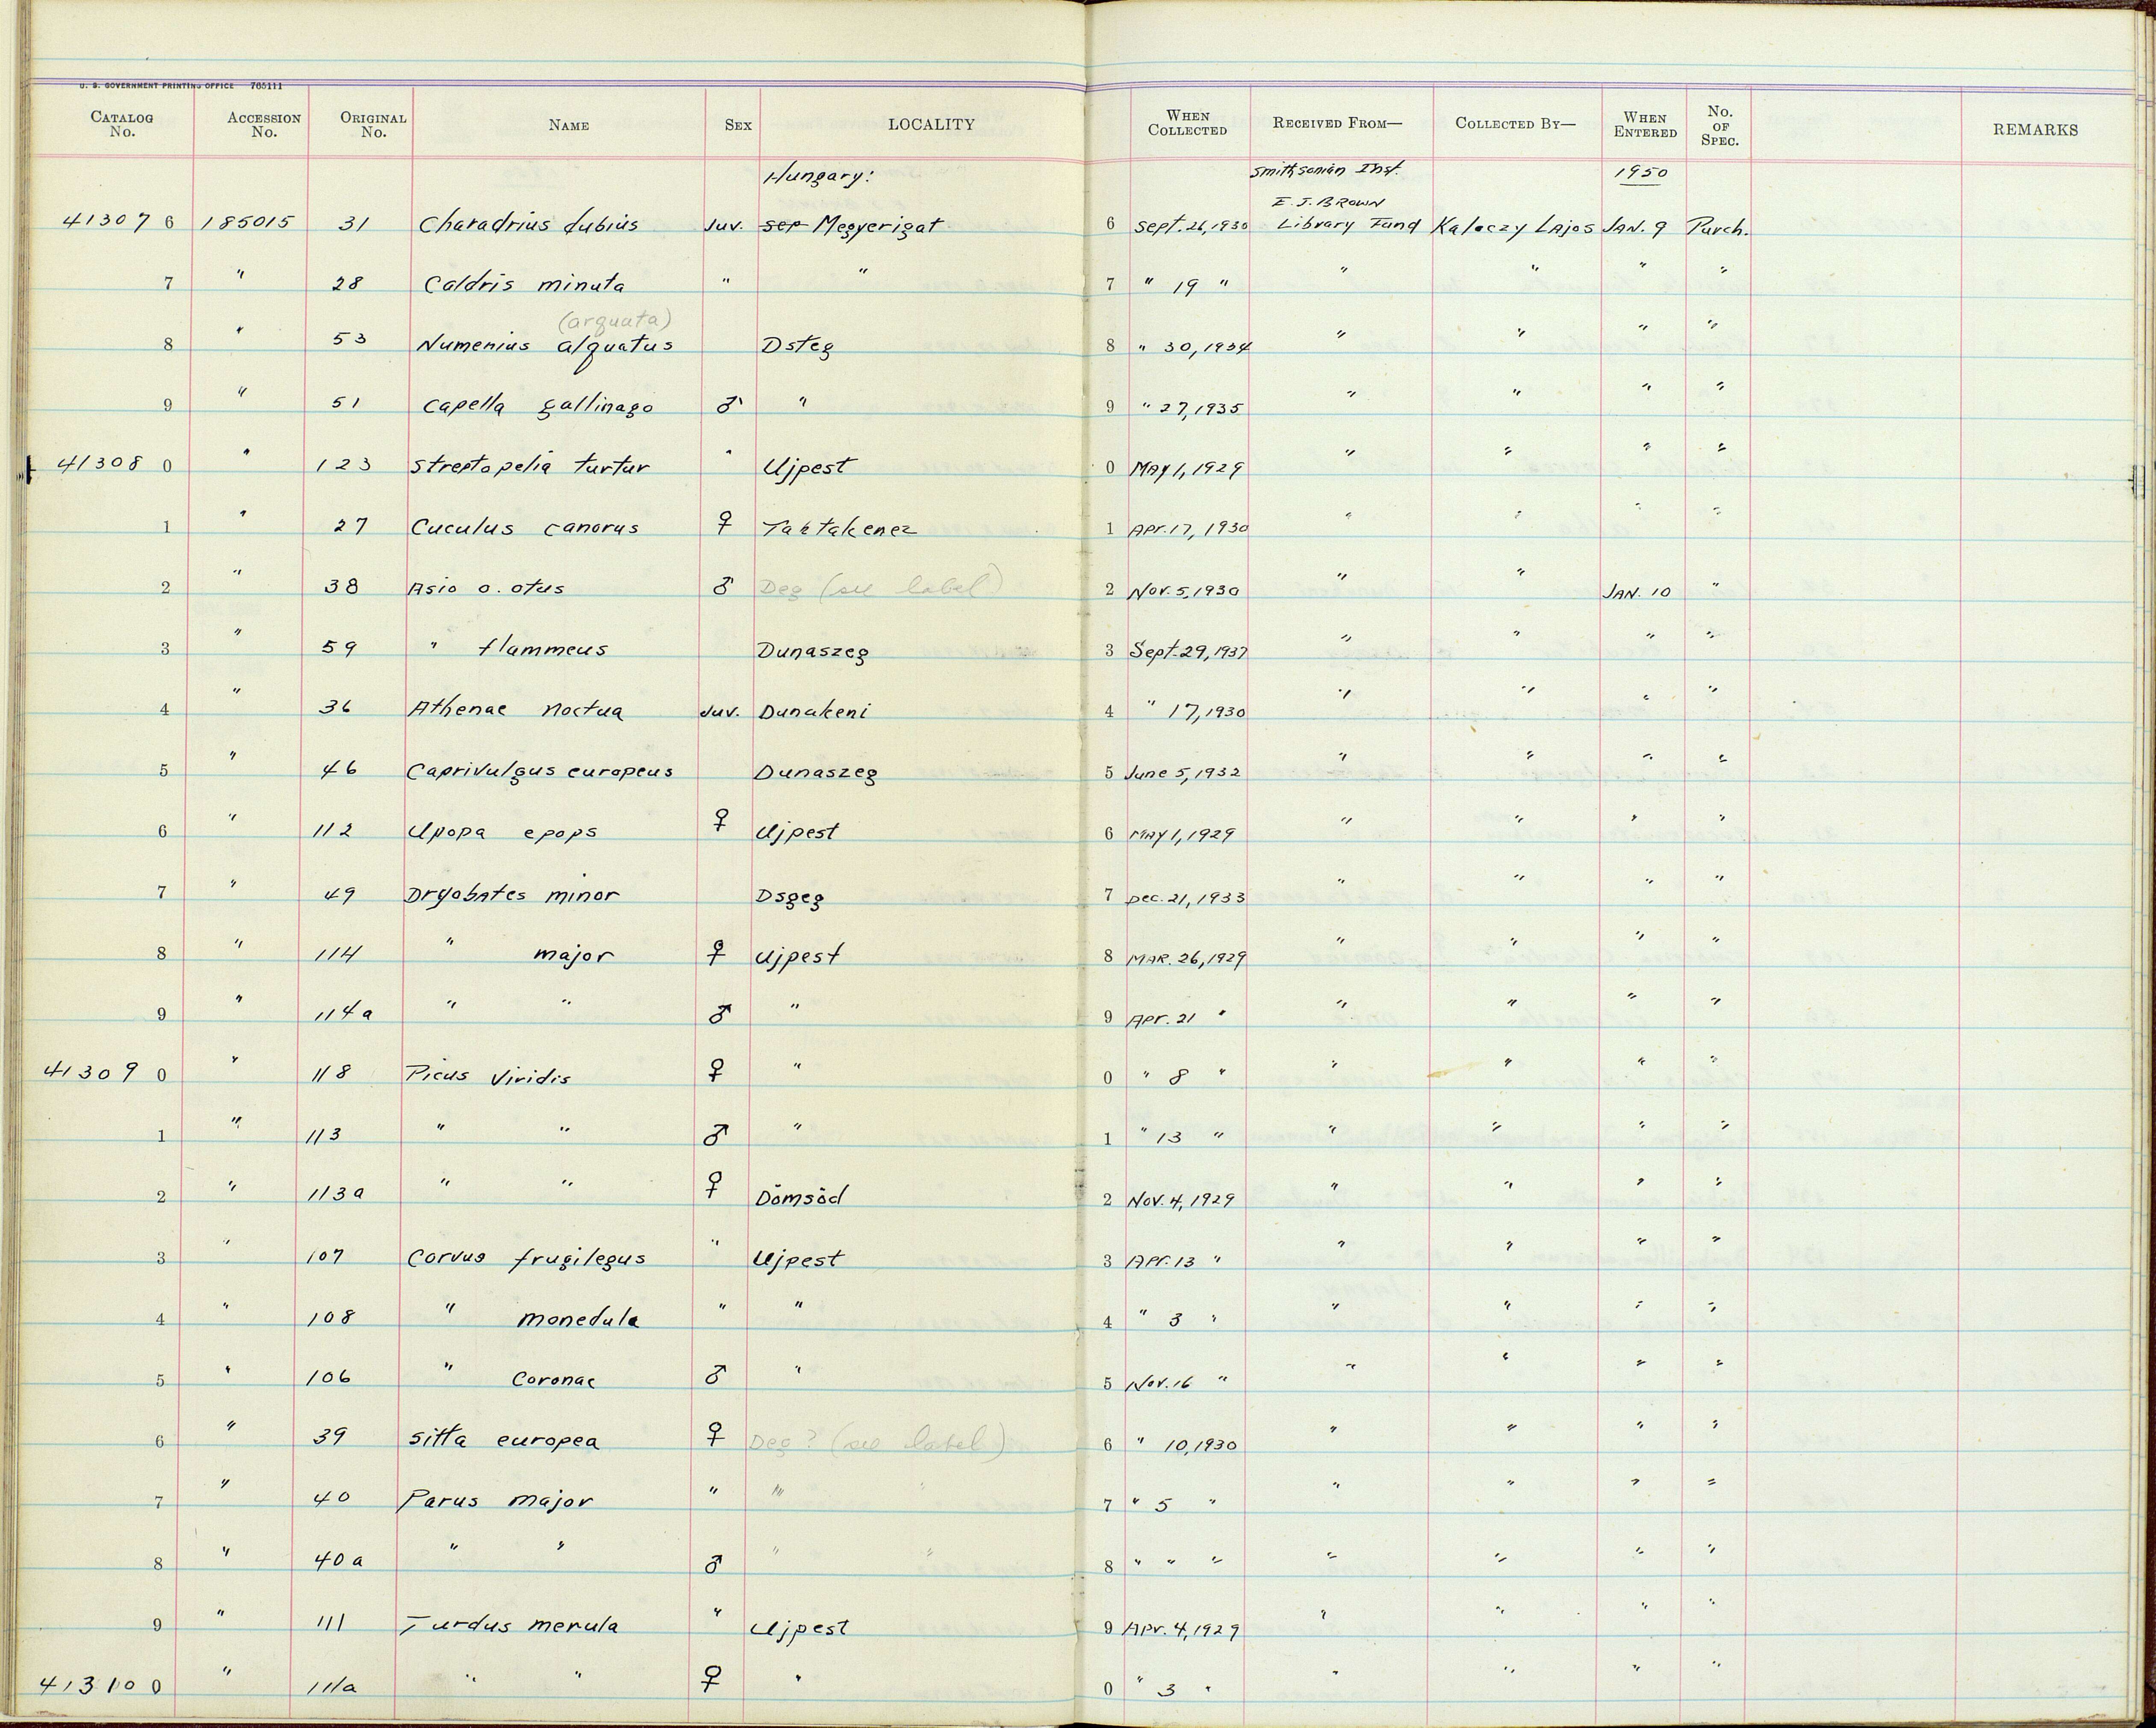 U. S. GOVERNMENT PRINTING OFFICE 765111
CATALOG No. ACCESSION No. ORIGINAL No. NAME SEX LOCALITY WHEN COLLECTED RECEIVED FROM— COLLECTED BY— WHEN ENTERED No. OF SPEC. REMARKS
Hungary: Smithsonian Inst. 1950
E. J. BROWN
41307 6 185015 31 Charadrius dubius Juv. sep Megyerigat 6 Sept. 26, 1930 Library Fund Kaloczy Lajos JAN. 9 Purch.
7 " 28 Caldris minuta " " 7 " 19 " " " " "
(arquata)
8 " 53 Numenius alquatus Dsteg 8 " 30, 1934 " " " "
9 " 51 Capella gallinago ♂ " 9 " 27, 1935 " " " "
41308 0 " 123 Streptopelia turtur " Ujpest 0 MAY 1, 1929 " " " "
1 " 27 Cuculus canorus ♀ Taktakenez 1 Apr. 17, 1930 " " " "
2 " 38 Asio o. otus ♂ Deg (see label) 2 Nov. 5, 1930 " " JAN. 10 "
3 " 59 " flammeus Dunaszeg 3 Sept. 29, 1937 " " " "
4 " 36 Athenae noctua Juv. Dunakeni 4 " 17, 1930 " " " "
5 " 46 Caprivulgus europeus Dunaszeg 5 June 5, 1932 " " " "
6 " 112 Upopa epops ♀ Ujpest 6 MAY 1, 1929 " " " "
7 " 49 Dryobates minor Dsgeg 7 Dec. 21, 1933 " " " "
8 " 114 " major ♀ Ujpest 8 MAR. 26, 1929 " " " "
9 " 114a " " ♂ " 9 Apr. 21 " " " " "
41309 0 " 118 Picus viridis ♀ " 0 " 8 " " " " "
1 " 113 " " ♂ " 1 " 13 " " " " "
2 " 113a " " ♀ Dömsöd 2 Nov. 4, 1929 " " " "
3 " 107 Corvus frugilegus " Ujpest 3 Apr. 13 " " " " "
4 " 108 " monedula " " 4 " 3 " " " " "
5 " 106 " Coronae ♂ " 5 Nov. 16 " " " " "
6 " 39 Sitta europea ♀ Deg? (see label) 6 " 10, 1930 " " " "
7 " 40 Parus major " " " 7 " 5 " " " " "
8 " 40a " " ♂ " " 8 " " " " " " "
9 " 111 Turdus merula " Ujpest 9 Apr. 4, 1929 " " " "
41310 0 " 111a " " ♀ " 0 " 3 " " " " "